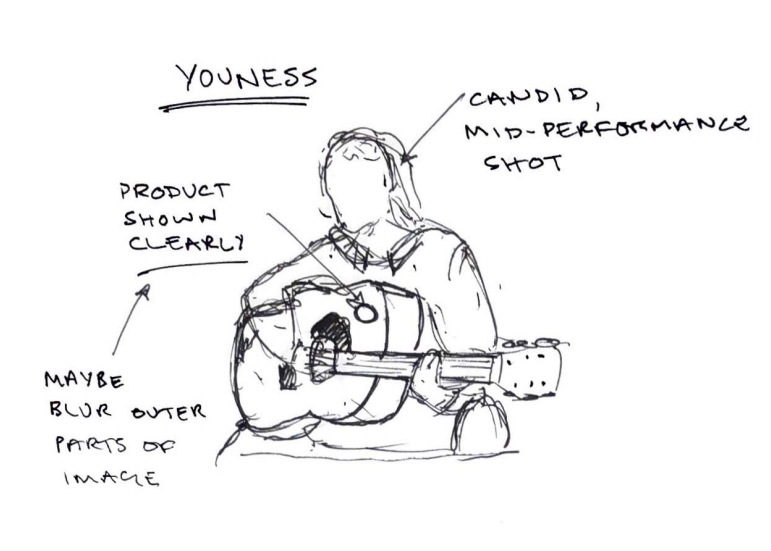 YOUNESS
CANDID,
MID-PERFORMANCE
SHOT
PRODUCT
SHOWN
CLEARLY
MAYBE
BLUR OUTER
PARTS OF
IMAGE